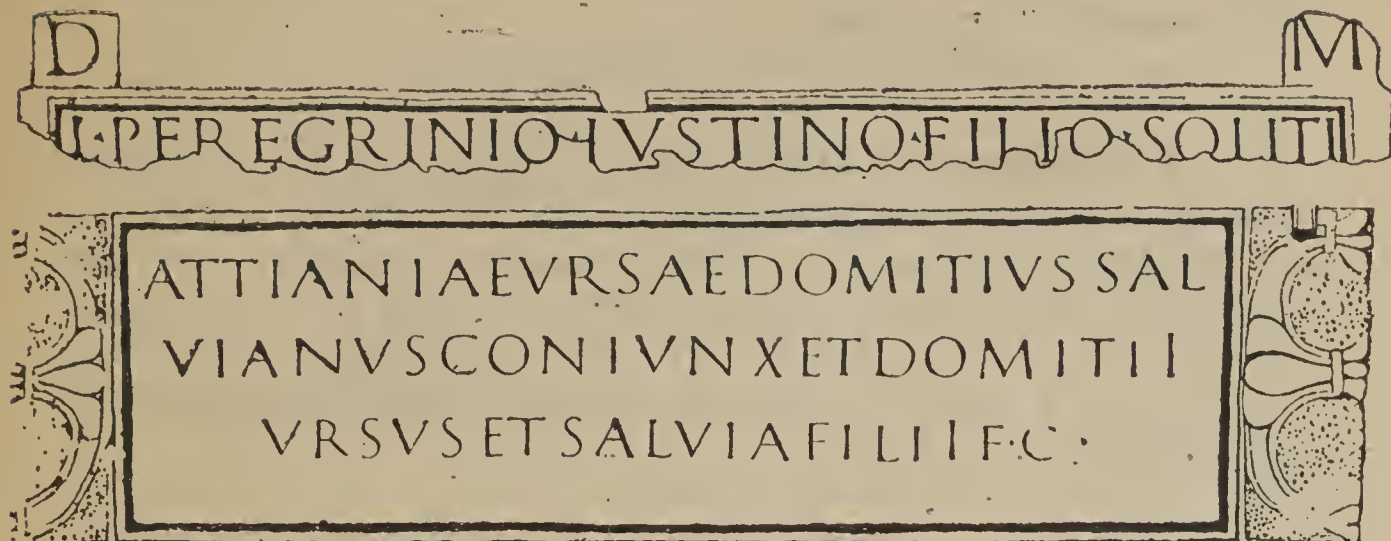 D M
I·PEREGRINIO·IVSTINO·FILIO·SOLITI
ATTIANIAEVRSAEDOMITIVSSAL
VIANVSCONIVNXETDOMITII
VRSVSETSALVIAFILIIF·C·